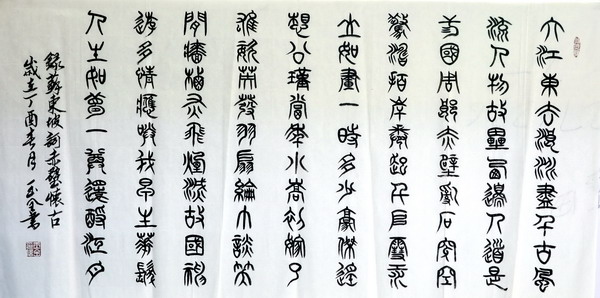 大江東去浪淘盡千古風
流人物故壘西邊人道是
三國周郎赤壁亂石穿空
驚濤拍岸卷起千堆雪江
山如畫一時多少豪傑遙
想公瑾當年小喬初嫁了
雄姿英發羽扇綸巾談笑
間檣櫓灰飛煙滅故國神
遊多情應笑我早生華髮
人生如夢一尊還酹江月
錄蘇東坡詞赤壁懷古
歲在丁酉春月 書